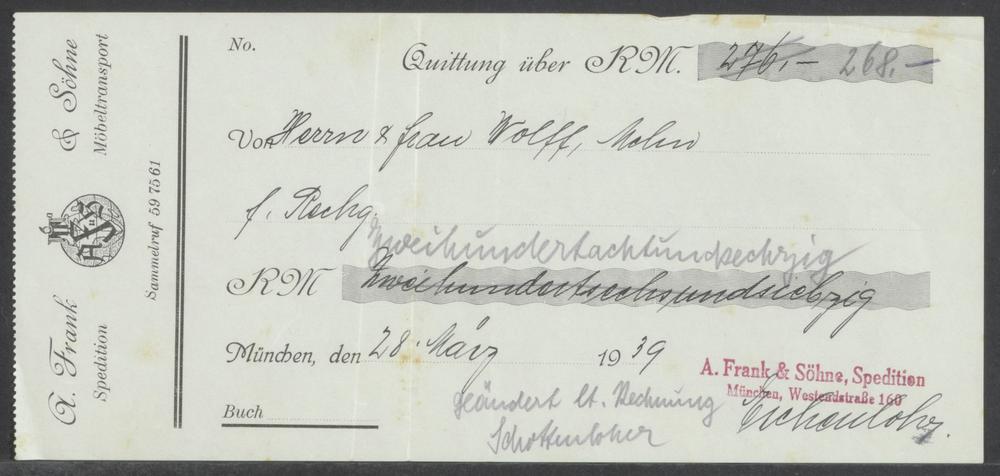 A. Frank & Söhne
Spedition Möbeltransport
A F & S
Sammelruf 59 75 61
No.
Quittung über RM. 276,- 268.-
Von Herrn & Frau Wolff,
f. Rechg.
Zweihundertachtundsechzig
RM Zweihundertsechsundsiebzig
München, den 28. März 1939
A. Frank & Söhne, Spedition
München, Westendstraße 160
geändert lt. Rechnung
Schottenloher
Buch